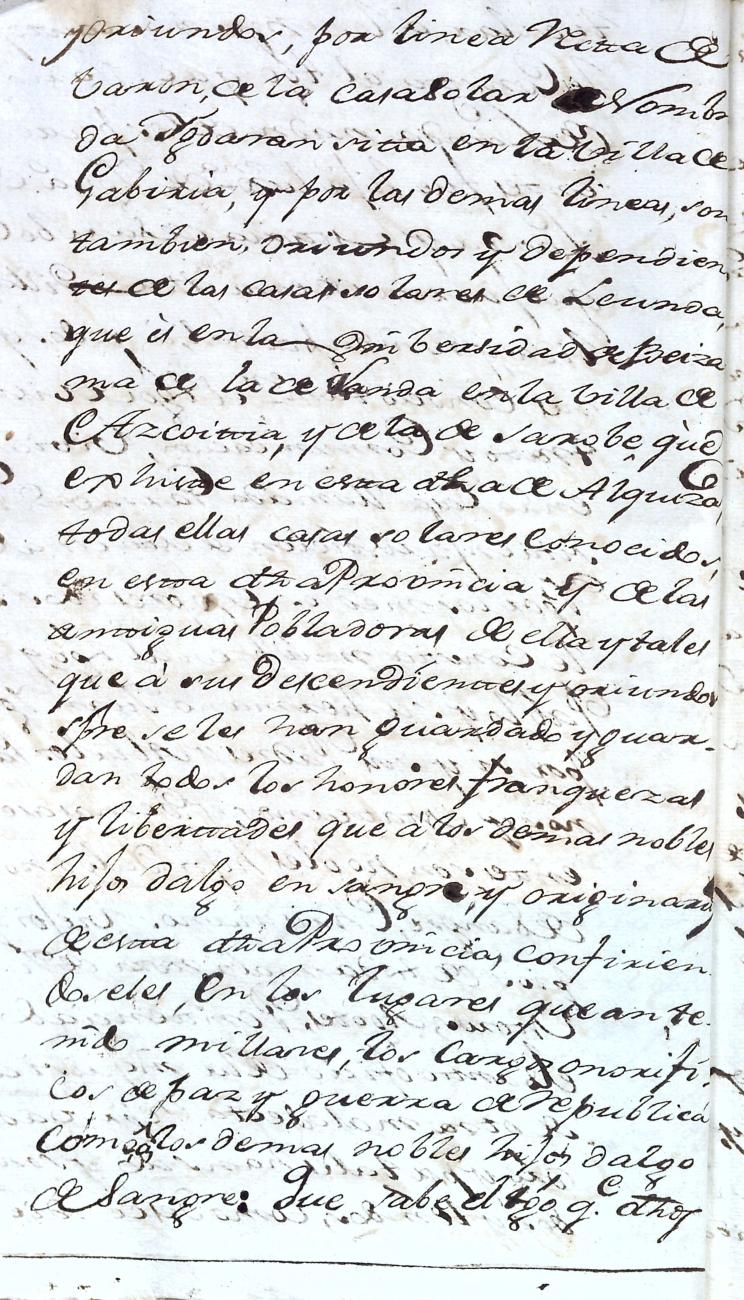 y oriundos, por linea Recta de
baron, de la casa Solar de Nombra
da Ygaran sitta en la Villa de
Gabiria, y por las demas lineas, son
tambien, oriundos y dependien
tes de las casas solares de Leunda,
que és en la Unibersidad de Beiza
ma de la de Vanda en la billa de
Azcoittia, y de la de sarobe què
exhiste en esta dha de Alquiza,
todas ellas casas solares Conocidos,
en estta dha Provincia y de las
anttiguas Pobladoras de ella y tales
que à sus Descendienttes y oriundos
sPre se les han guardado y guar-
dan todos los honores, franquezas
y liberttades que à los demas nobles
hijos dalgo en sangre, y originari
de estta dha Provincia, confirien
doseles, en los lugares que an te-
nido millares, los Cargos onorifi-
cos de paz y guerra de Republica
Como à los demas nobles hijos dalgo
de Sangre: Que sabe el tgo q.e dhos